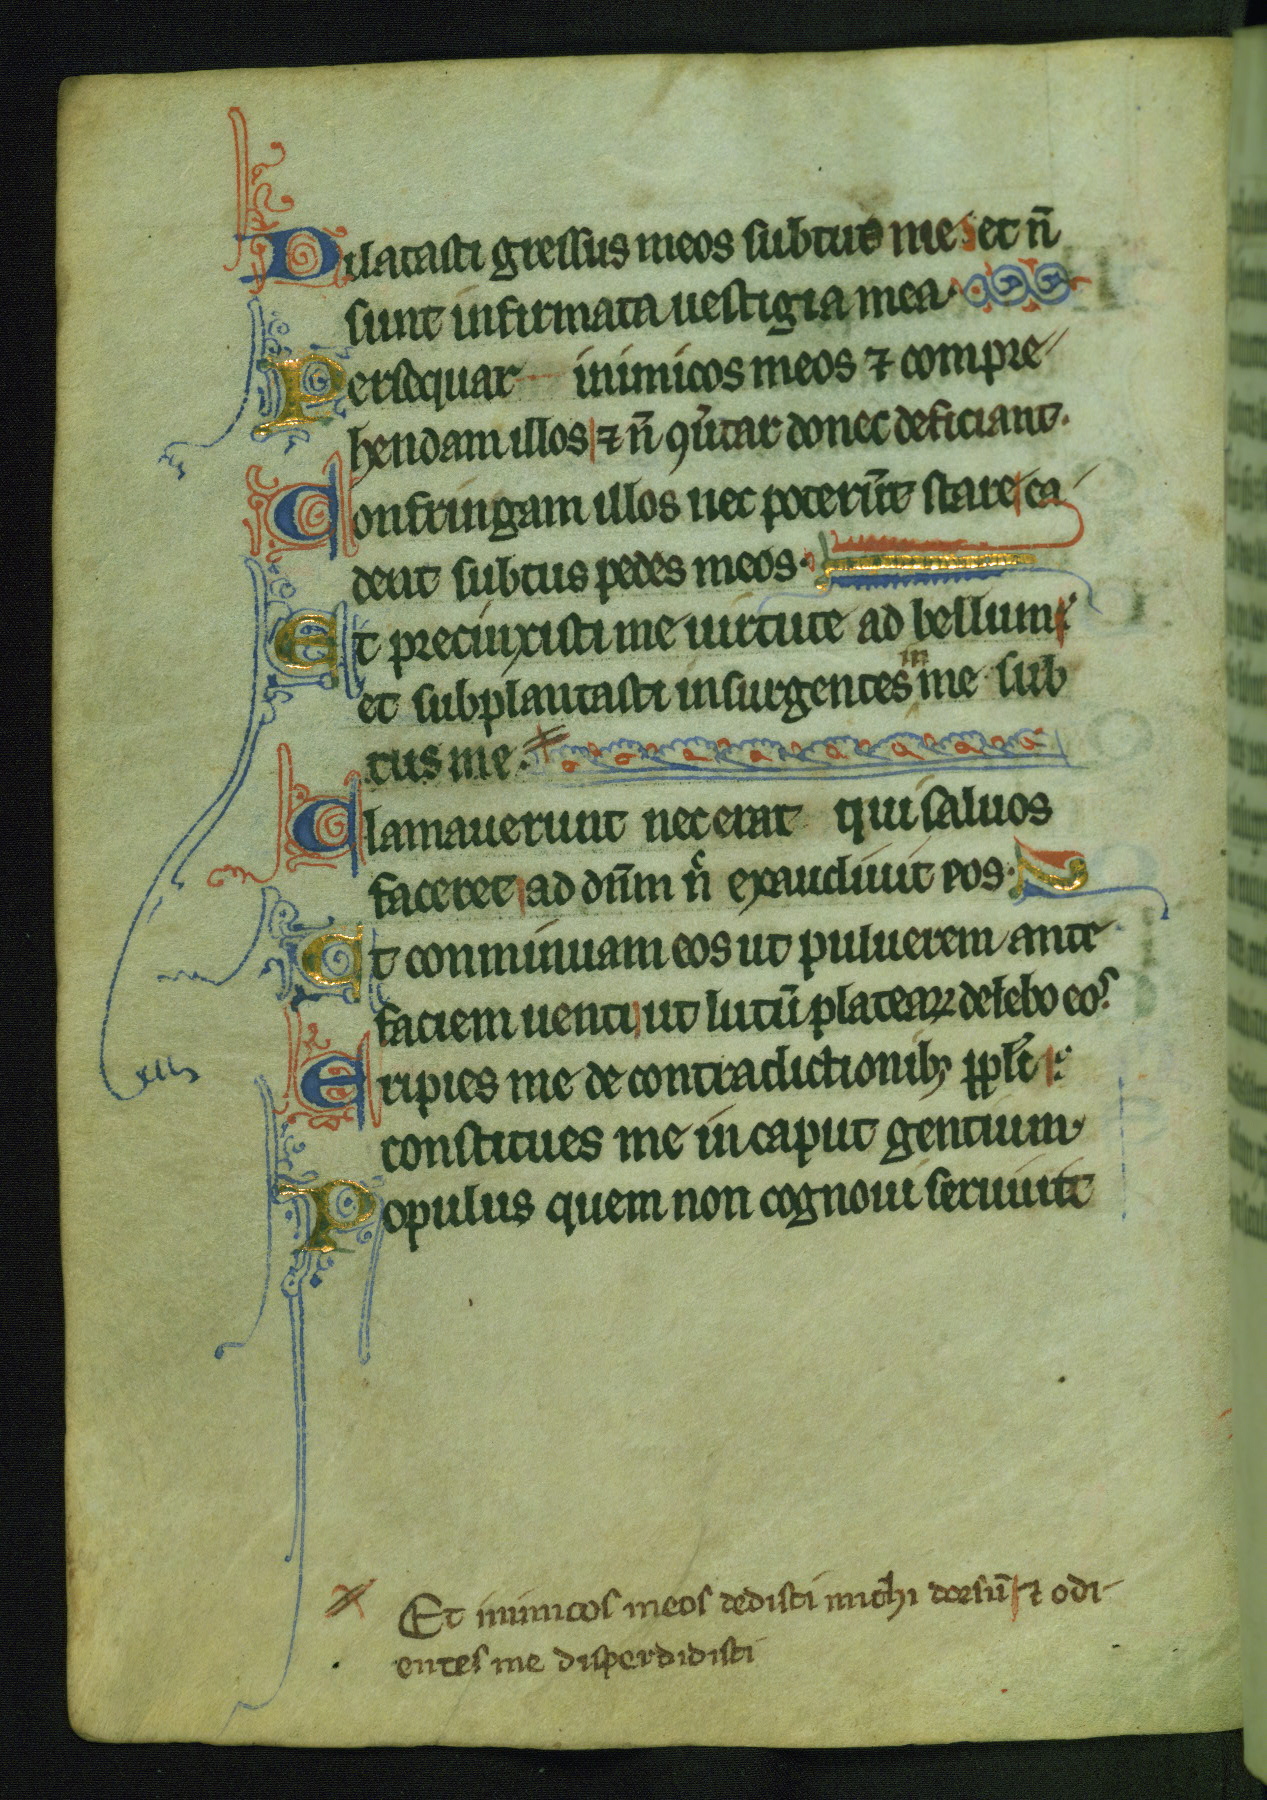 Dilatasti gressus meos subtus me et n̄
sunt infirmata uestigia mea
Persequar inimicos meos ⁊ compre
hendam illos ⁊ n̄ ꝯũtar donec deficiant.
Confringam illos nec poterūt stare ca
dent subtus pedes meos.
Et precinxisti me uirtute ad bellum
et subplantasti insurgentes in me sub
tus me.
Clamauerunt nec erat qui saluos
faceret ad dn̄m n̄r exaudiuit eos.
Et conminuam eos ut puluerem ante
faciem uenti ut lutū plateaꝝ delebo eos
Eripies me de contradictionibꝫ ppl̄i
constitues me in caput gentium
Populus quem non cognoui seruiuit
Et inimicos meos dedisti michi dorsū ⁊ odi-
entes me disperdidisti